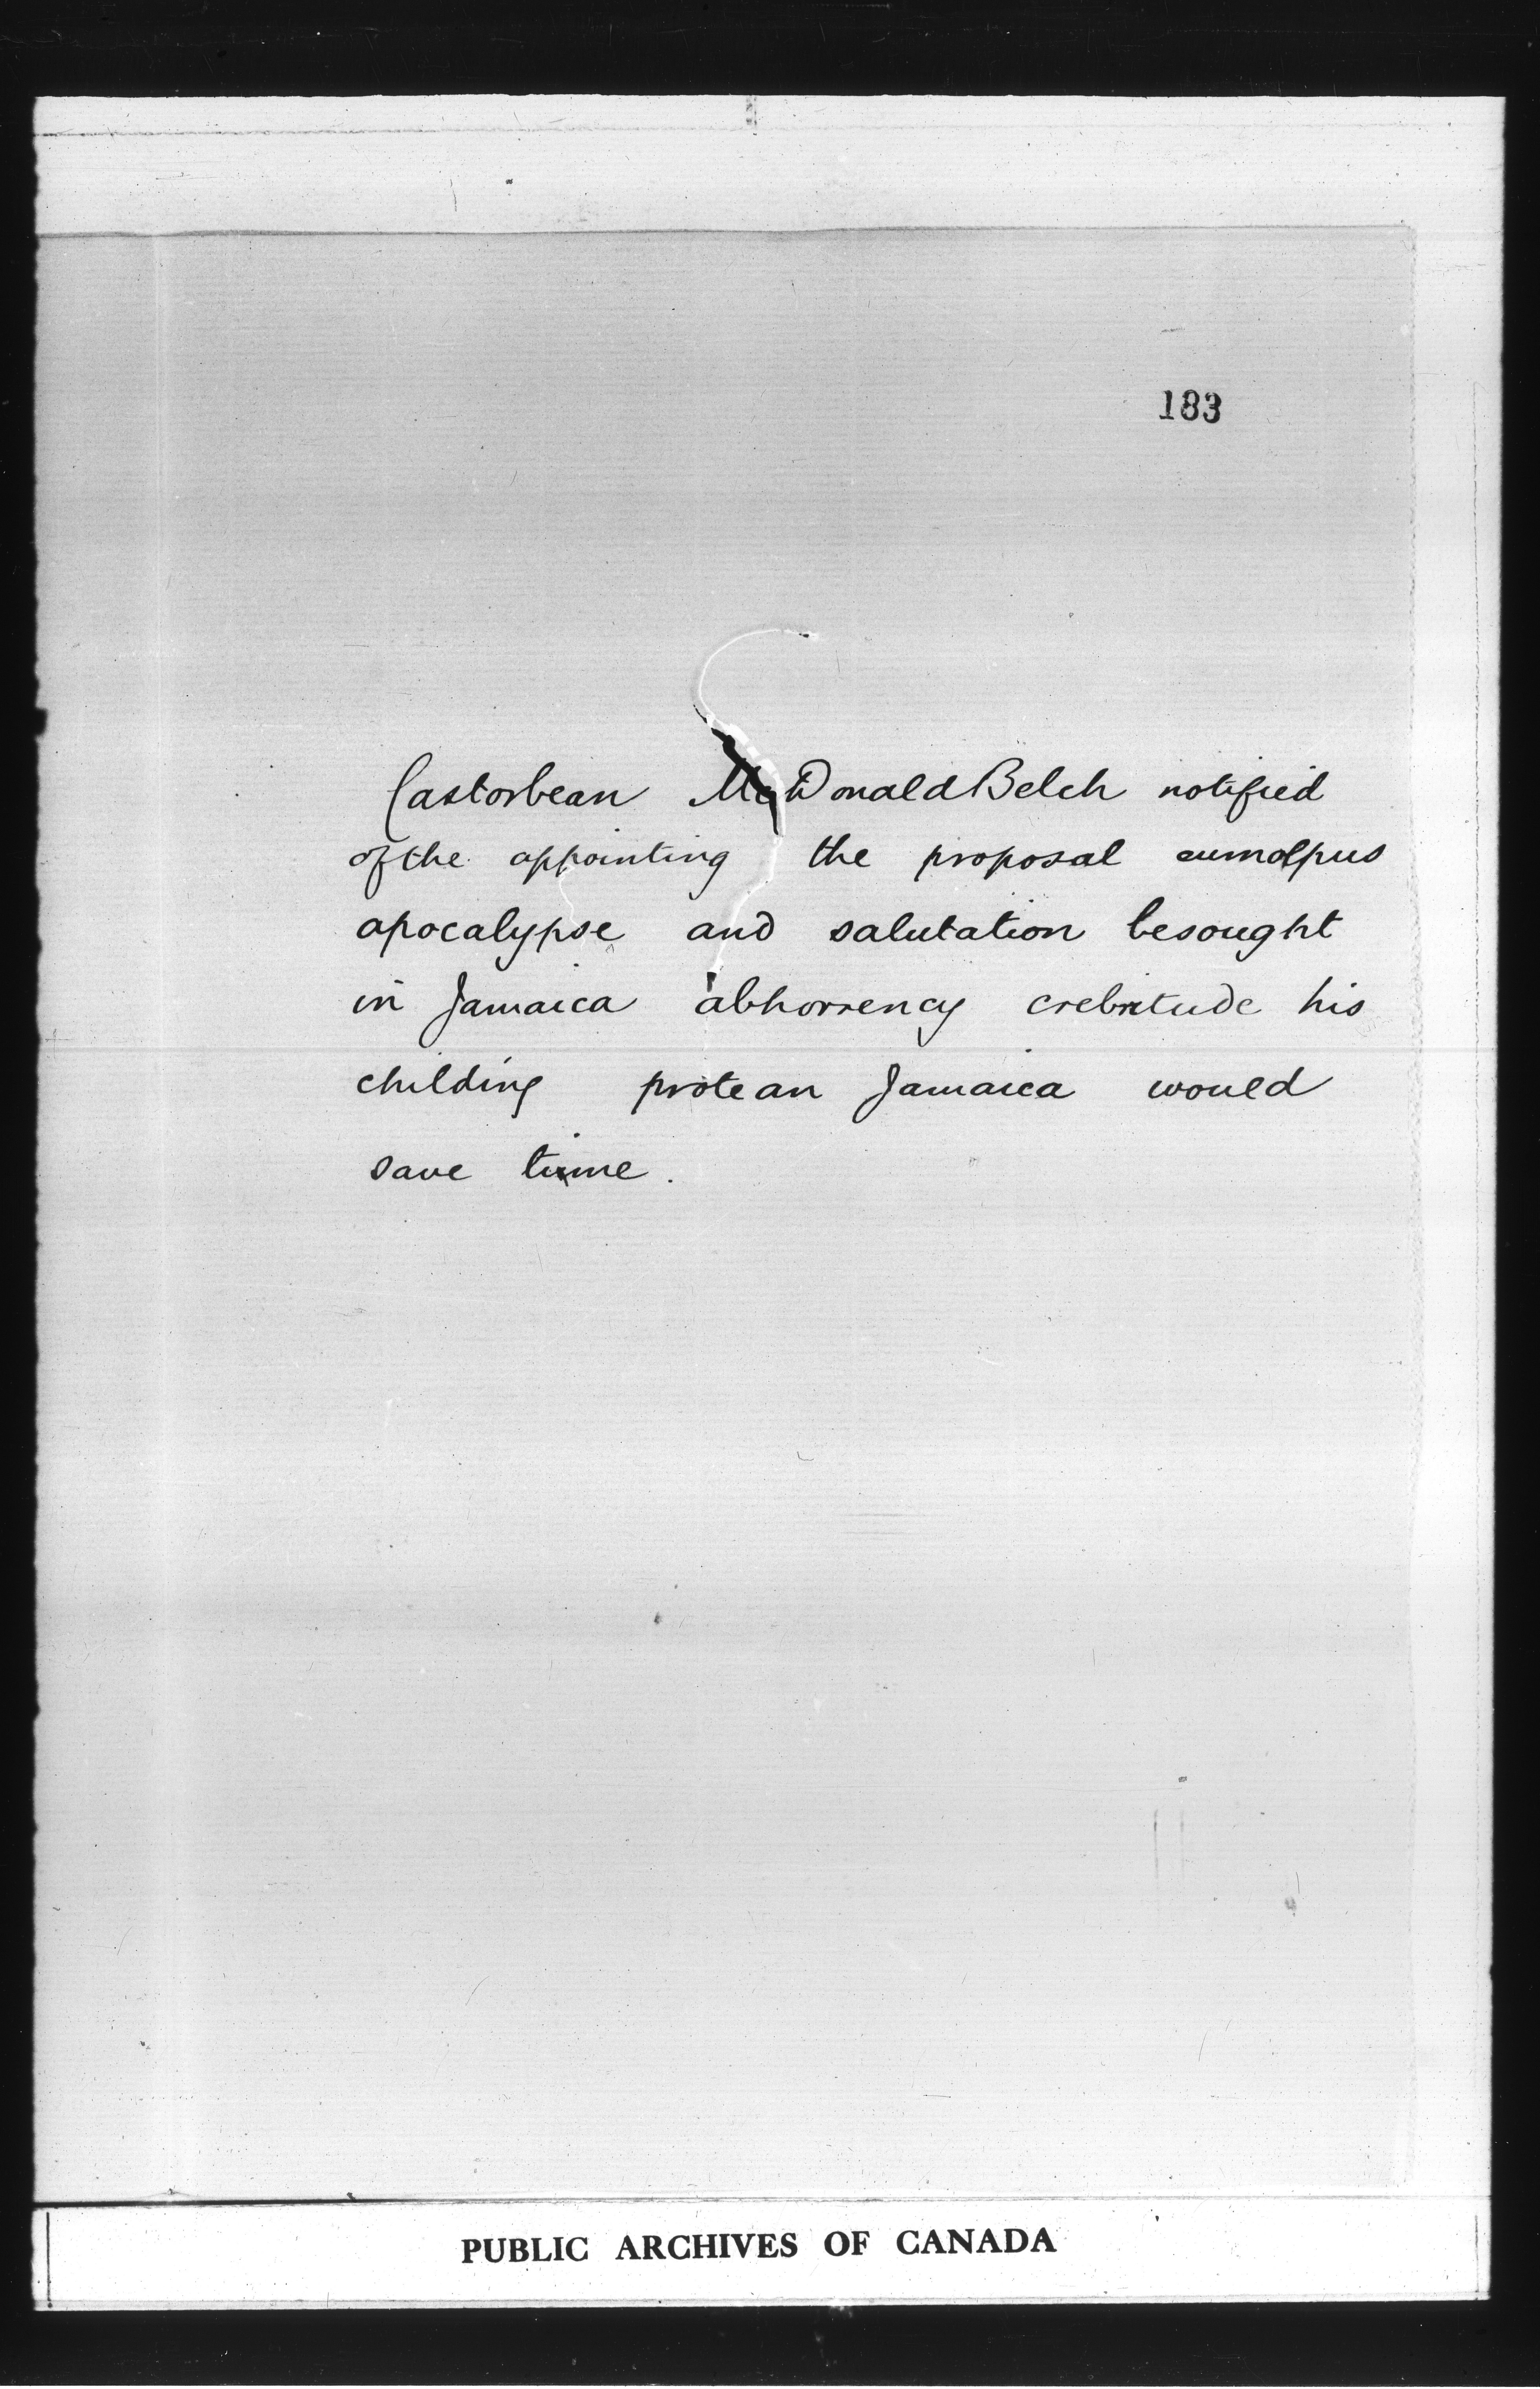 183
Castorbean McDonald Belch notified
of the appointing the proposal eumolpus
apocalypse and salutation besought
in Jamaica abhorrency crebritude his
childing protean Jamaica would
save time.
PUBLIC ARCHIVES OF CANADA